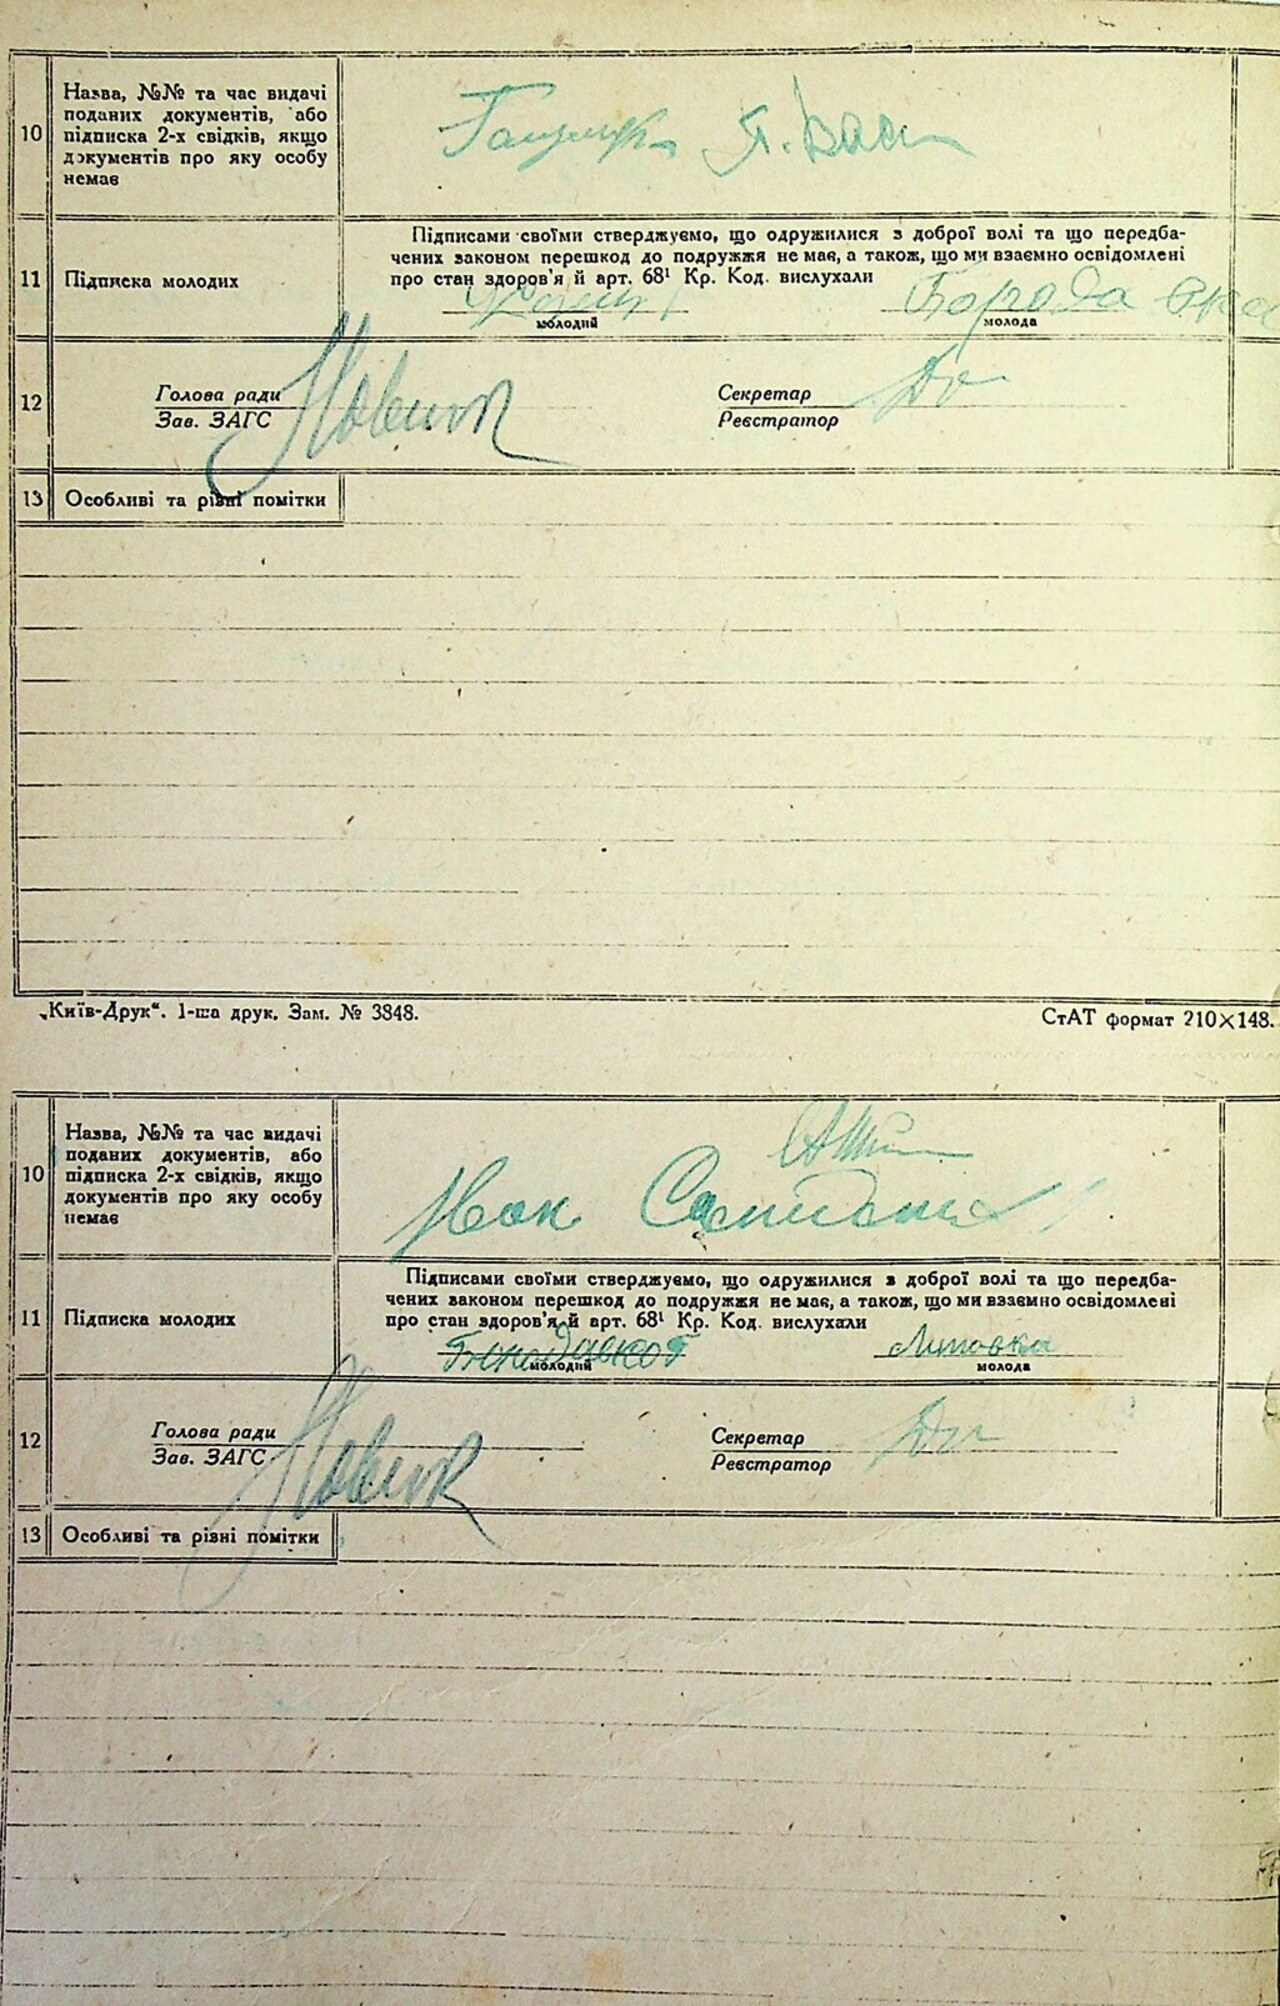 10
Назва, №№ та час видачі
поданих документів, або
підписка 2-х свідків, якщо
документів про яку особу
немає
11
Підписка молодих
Підписами своїми стверджуємо, що одружилися з доброї волі та що передба-
чених законом перешкод до подружжя не має, а також, що ми взаємно освідомлені
про стан здоров'я й арт. 68¹ Кр. Код. вислухали
Борода
молодий
молода
12
Голова ради
Зав. ЗАГС
Новик
Секретар
Реєстратор
13
Особливі та рівні помітки
„Київ-Друк“. 1-ша друк. Зам. № 3848.
СтАТ формат 210×148.
10
Назва, №№ та час видачі
поданих документів, або
підписка 2-х свідків, якщо
документів про яку особу
немає
11
Підписка молодих
Підписами своїми стверджуємо, що одружилися з доброї волі та що передба-
чених законом перешкод до подружжя не має, а також, що ми взаємно освідомлені
про стан здоров'я й арт. 68¹ Кр. Код. вислухали
Литовка
молодий
молода
12
Голова ради
Зав. ЗАГС
Новик
Секретар
Реєстратор
13
Особливі та різні помітки